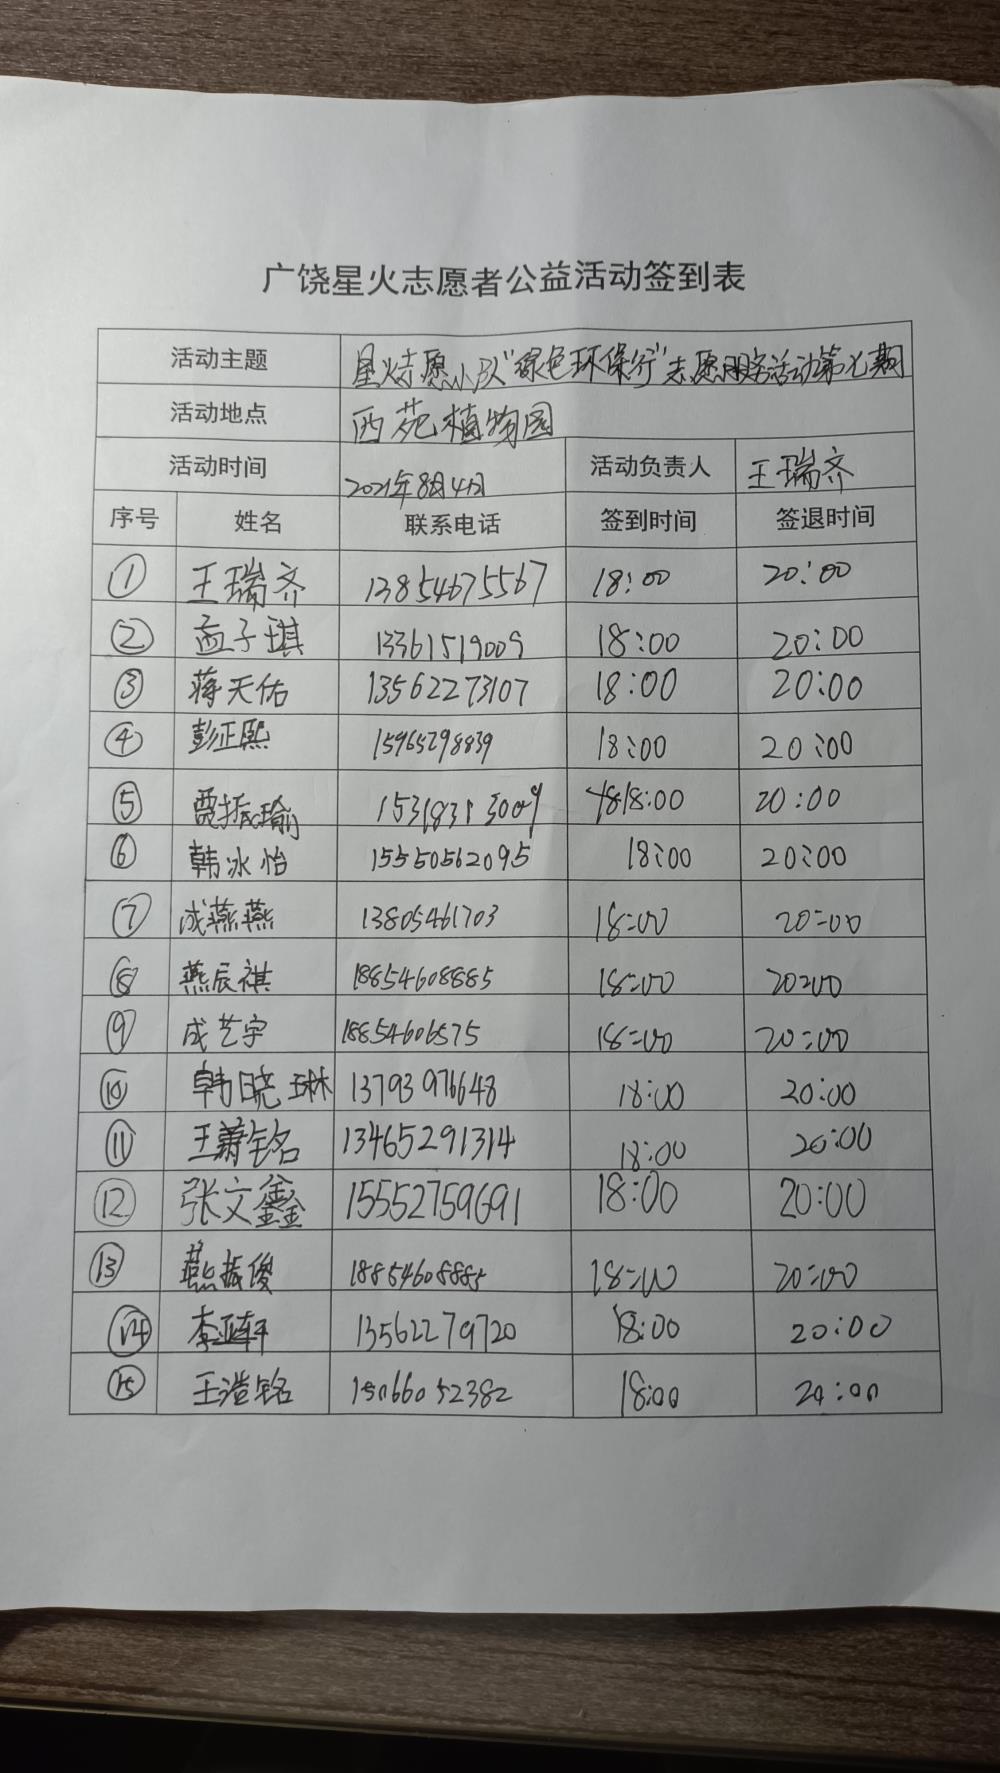 广饶星火志愿者公益活动签到表
活动主题 星火志愿小队“绿色环保行”志愿服务活动第七期
活动地点 西苑植物园
活动时间 2021年8月4日 活动负责人 王瑞齐
序号 姓名 联系电话 签到时间 签退时间
① 王瑞齐 13854675567 18:00 20:00
② 孟子琪 13361519009 18:00 20:00
③ 蒋天佑 13562273107 18:00 20:00
④ 彭正熙 15965298839 18:00 20:00
⑤ 贾振瑜 15318313009 18:00 20:00
⑥ 韩冰怡 15550562095 18:00 20:00
⑦ 成燕燕 13805461703 18:00 20:00
⑧ 燕辰祺 18854608885 18:00 20:00
⑨ 成艺宇 18854606575 18:00 20:00
⑩ 韩晓琳 13793976648 18:00 20:00
⑪ 王萧铭 13465291314 18:00 20:00
⑫ 张文鑫 15552759691 18:00 20:00
⑬ 燕振俊 18854608885 18:00 20:00
⑭ 李亚轩 13562279720 18:00 20:00
⑮ 王滢铭 15066052382 18:00 20:00